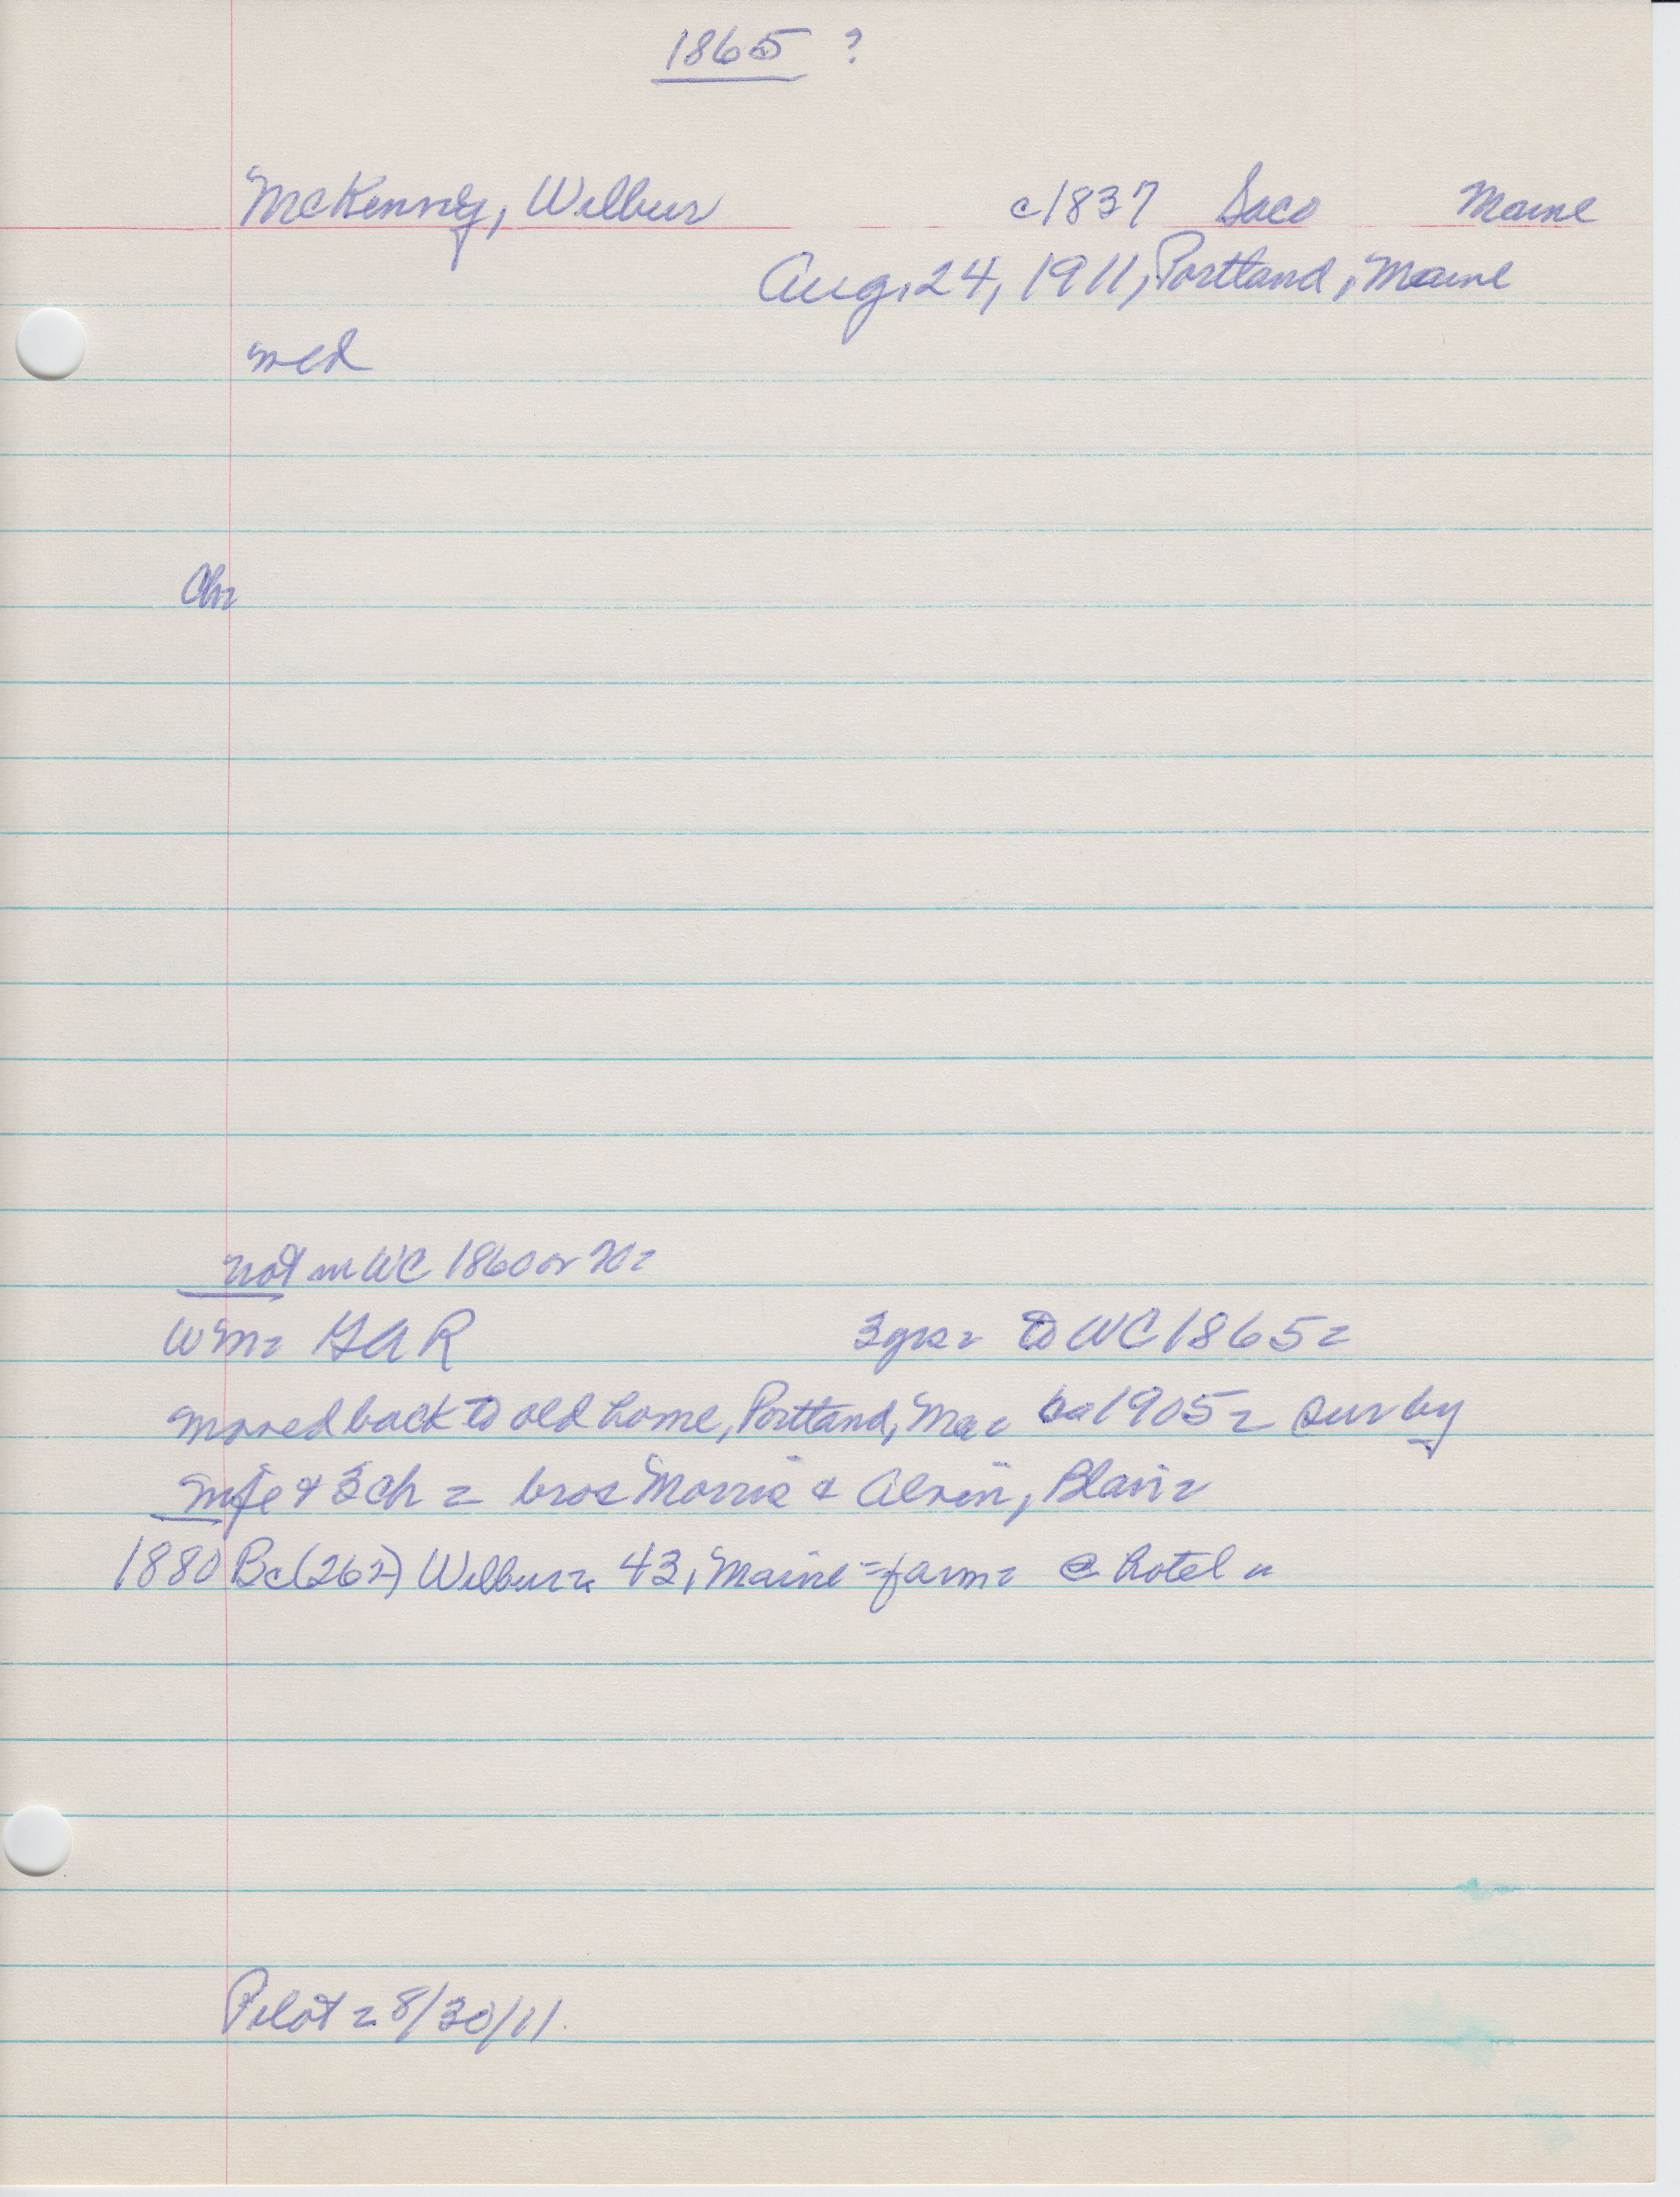 1865 ?
McKenney, Wilbur c1837 Saco Maine
Aug. 24, 1911, Portland, Maine
med
Ch=
not in WC 1860 or 70=
Wm= GAR 3 yrs= to WC 1865=
moved back to old home, Portland, Me= ca 1905= sur by
wife & 3 ch = bros Morris & Alvin, Blair=
1880 Bc(262) Wilbur= 43, Maine=farm= @ hotel =
Pilot = 8/30/11.